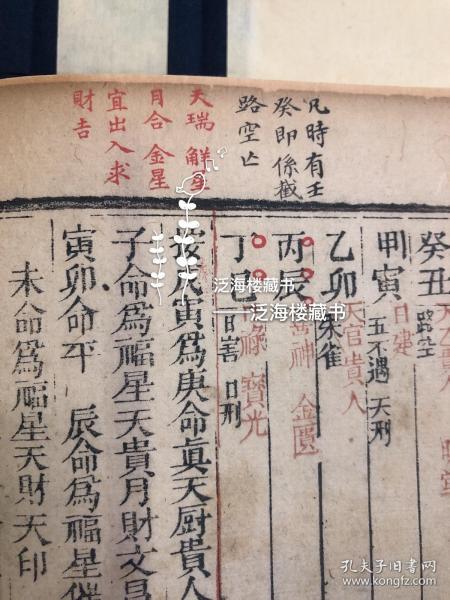 凡時有壬
癸即係截
路空亡
天瑞 鮮星
月合 金星
宜出入求
財吉
癸丑 天乙貴人
路空
甲寅 日建
五不遇 天刑
乙卯 天官貴人
朱雀
丙辰 金匱
丁巳 祿 寶光
日害 日刑
寅為庚命真天厨貴人
子命為福星天貴月財文昌
寅卯命平 辰命為福星催
未命為福星天財天印
泛海楼藏书
——泛海楼藏书
孔夫子旧书网
www.kongfz.com